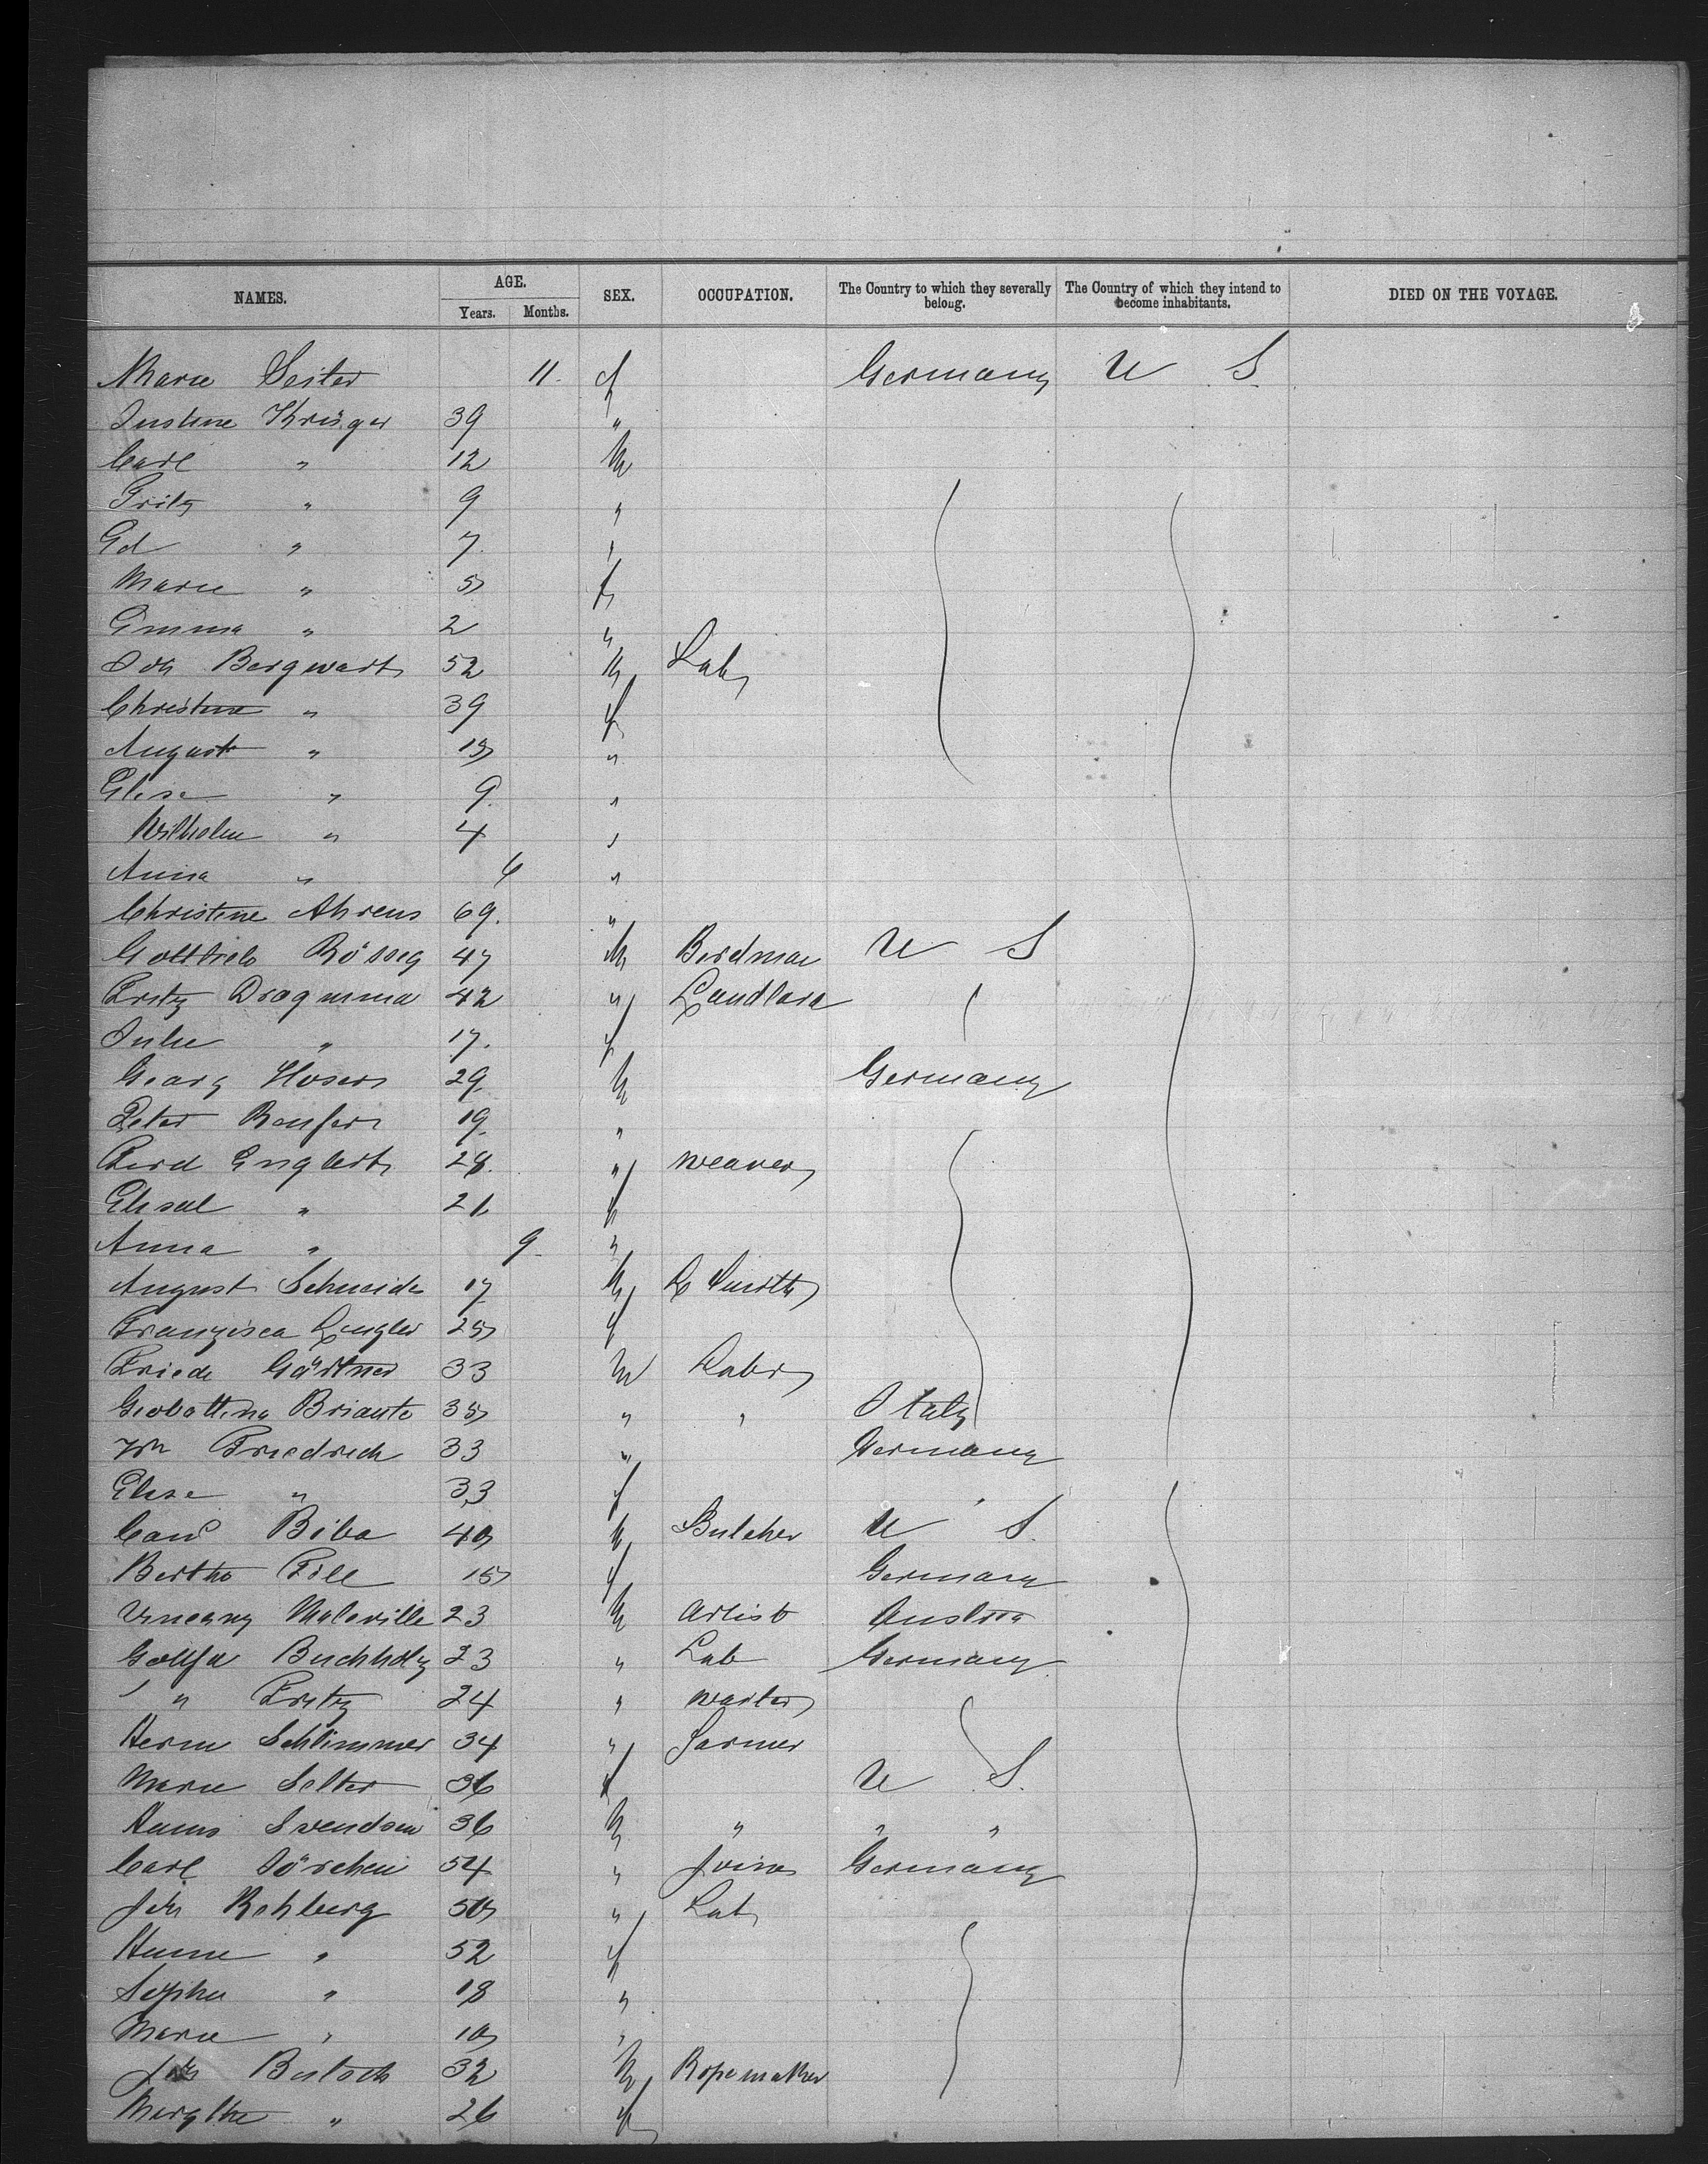 NAMES. AGE. SEX. OCCUPATION. The Country to which they severally belong. The Country of which they intend to become inhabitants. DIED ON THE VOYAGE.
Years. Months.
Marie Seiter 11. f Germany U S.
Justine Krüger 39 "
Carl " 12 M
Fritz " 9 "
Ed " 7. "
Marie " 5 f
Emma " 2 "
Joh Bergwart 52 M Lab
Christine " 39 f
August " 13 "
Elise " 9. "
Wilhelm " 4 "
Anna " 6 "
Christine Ahrens 69. "
Gottlieb 47 M Birdman U S
Fritz 42 " Landlord
Julie " 17. f
Georg Hosers 29 M Germany
Peter 19. "
Ferd Englert 28. " Weaver
Elisab " 21 f
Anna " 9. "
August Schneider 17 M B Smith
Franzisca Lengler 25 f
Friedr Gärtner 33 M Labr
Briante 35 " " Italy
Wm Friedrich 33 " Germany
Elise " 33 f
Biba 40 M Butcher U S.
Bertha 15 f Germany
23 M Artist Austria
Buchholz 23 " Lab Germany
" Fritz 24 " Waiter
Herm Schlimmer 34 " Farmer
Marie Selter 36 f U S.
Hans Svendsen 36 M " " "
Carl Dörchen 54 " Joiner Germany
Joh Rehberg 50 " Lab
Hanne " 52 f
Sophie " 18 "
Marie " 10 "
Joh 32 M Ropemaker
" 26 f